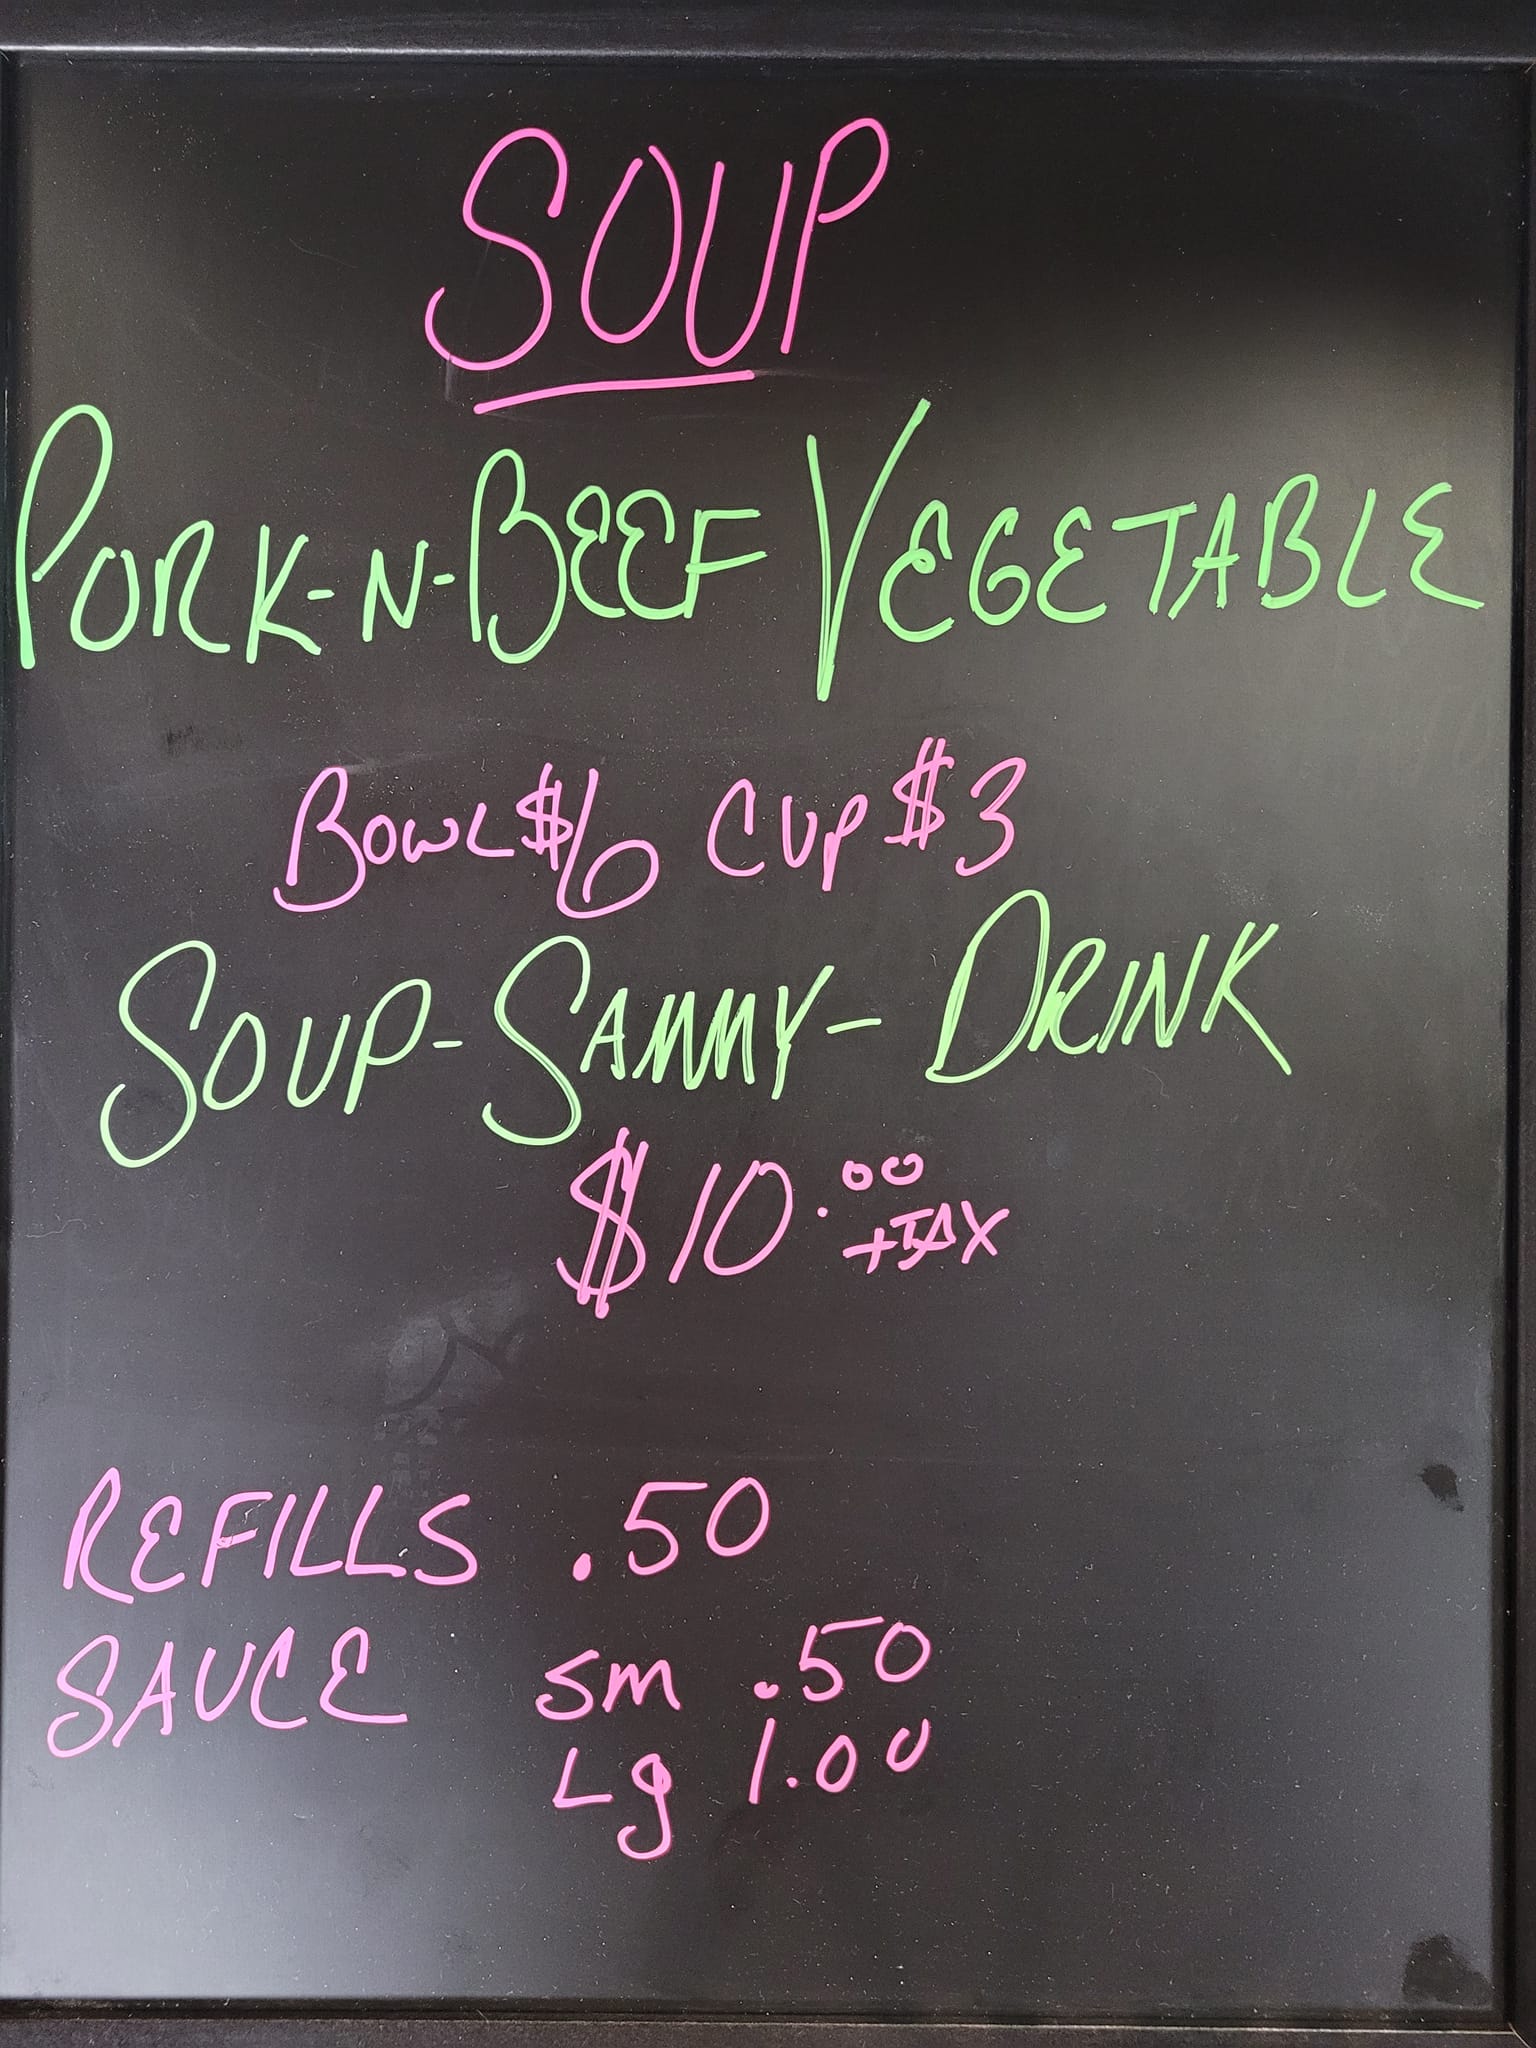 SOUP
PORK-N-BEEF VEGETABLE
BOWL $6 CUP $3
SOUP-SAMMY-DRINK
$10.00
+TAX
REFILLS .50
SAUCE sm .50
Lg 1.00